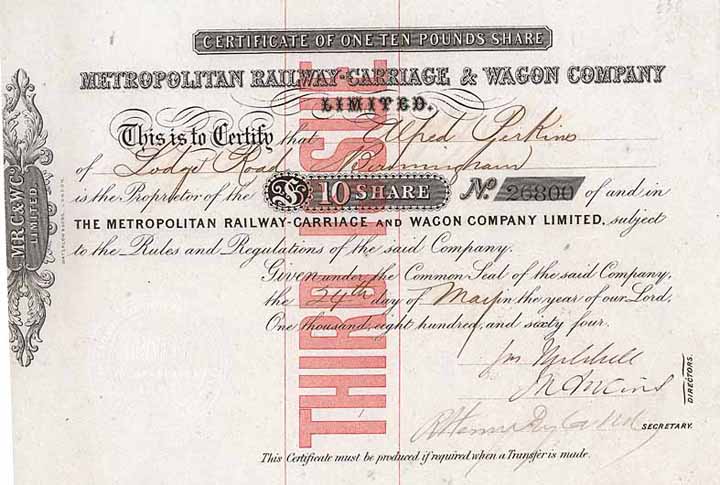 CERTIFICATE OF ONE TEN POUNDS SHARE
METROPOLITAN RAILWAY-CARRIAGE & WAGON COMPANY
LIMITED.
This is to Certify that Alfred Perkins
of Lodge Road Birmingham
is the Proprietor of the £10 SHARE No. 26800 of and in
THE METROPOLITAN RAILWAY-CARRIAGE AND WAGON COMPANY LIMITED, subject
to the Rules and Regulations of the said Company.
Given under the Common Seal of the said Company,
the 24th day of May in the year of our Lord,
One thousand, eight hundred, and sixty four.
DIRECTORS.
SECRETARY.
This Certificate must be produced if required when a Transfer is made.
M.R.C. & W. Co.
LIMITED.
THIRD ISSUE